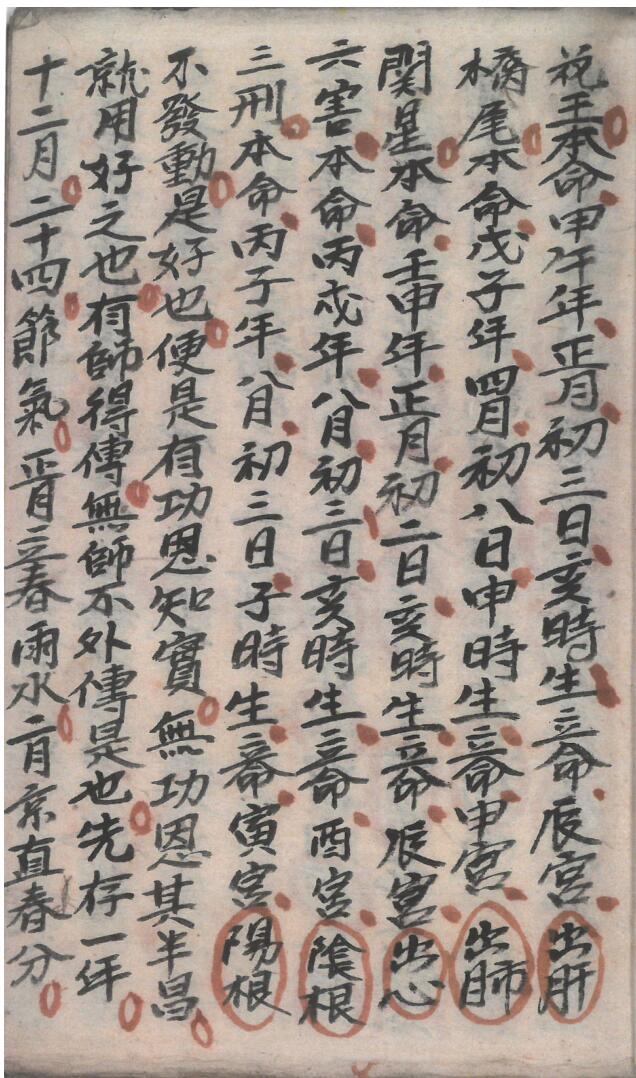 花王本命甲午年正月初三日亥時生立命辰宮出肝
橋尾本命戊子年四月初八日申時生立命申宮出肺
関星本命壬申年正月初二日亥時生立命辰宮出心
六害本命丙戌年八月初三日亥時生立命酉宮陰根
三刑本命丙子年八月初三日子時生立命寅宮陽根
不發動是好也便是有功恩知實無功恩其半昌
就用好之也有師得傳無師不外傳是也先存一年
十二月二十四節氣正月立春雨水二月京直春分